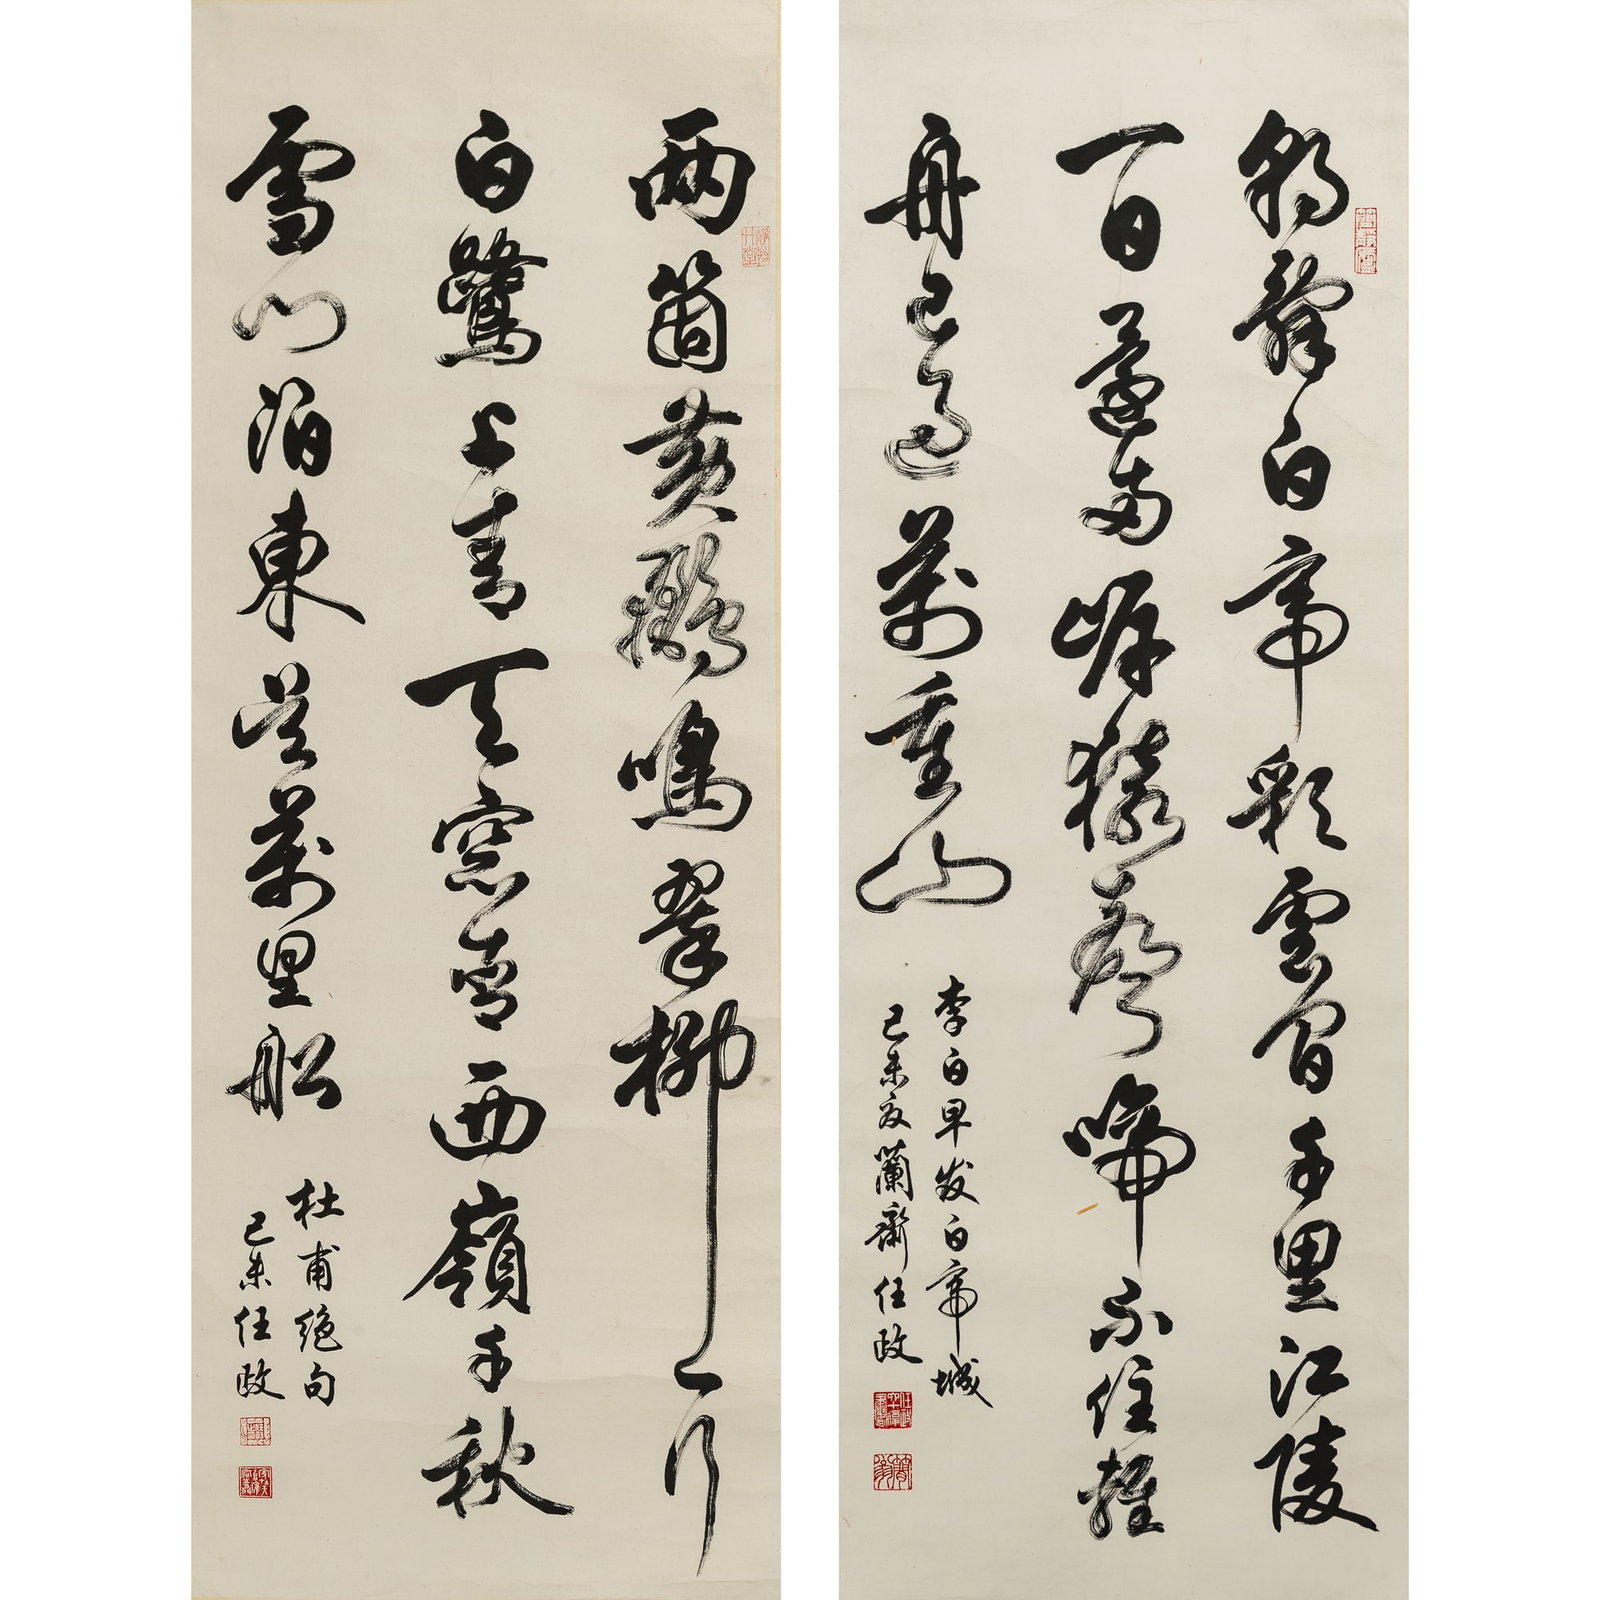 朝辭白帝彩雲間千里江陵
一日還兩岸猿聲啼不住輕
舟已過萬重山
李白早发白帝城
己未夏蘭齋任政
兩箇黃鸝鳴翠柳一行
白鷺上青天窓含西嶺千秋
雪門泊東吳萬里船
杜甫絕句
己未任政